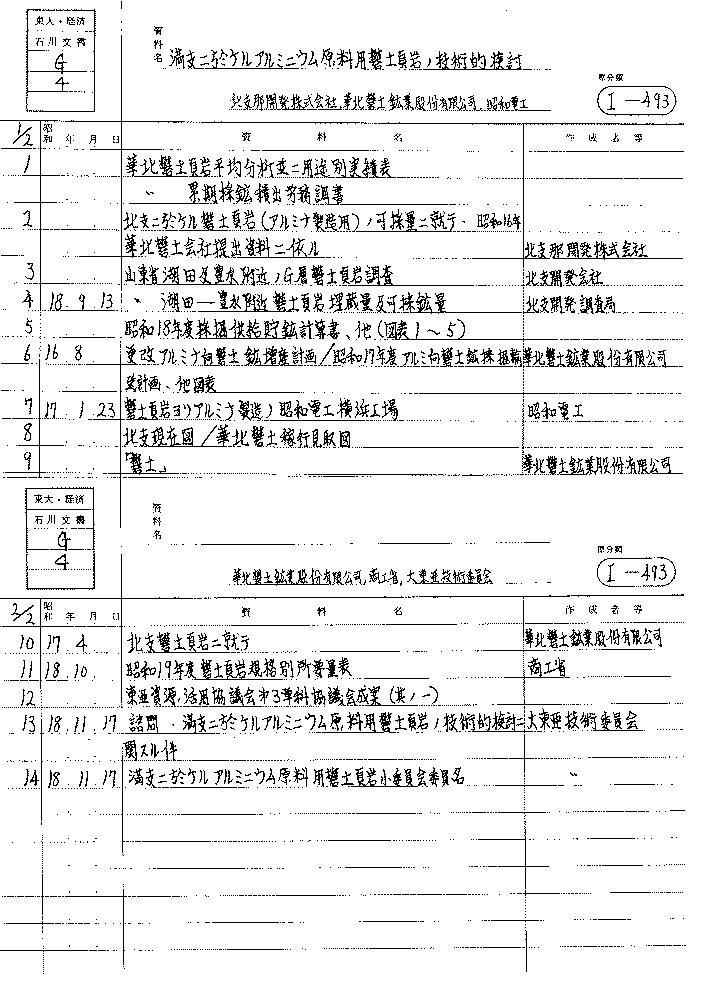 東大・経済
石川文書
G
4
資料名
満支ニ於ケルアルミニウム原料用礬土頁岩ノ技術的検討
原分類
北支那開発株式会社,華北礬土鉱業股份有限公司,昭和電工
I—493
1/2 昭和 年 月 日 資 料 名 作 成 者 等
1 華北礬土頁岩平均分析並ニ用途別実績表
〃 累期採鉱積出労務調書
2 北支ニ於ケル礬土頁岩(アルミナ製造用)ノ可採量ニ就テ・昭和16年
華北礬土会社提出資料ニ依ル 北支那開発株式会社
3 山東省湖田及豊水附近ノG層礬土頁岩調査 北支開発会社
4 18. 9. 13 〃 湖田—豊水附近礬土頁岩埋蔵量及可採鉱量 北支開発調査局
5 昭和18年度採掘供給貯鉱計算書、他(図表1〜5)
6 16 8 更改アルミナ向礬土鉱増産計画/昭和17年度アルミ向礬土鉱採掘輸 華北礬土鉱業股份有限公司
送計画、他図表
7 17 1 23 礬土頁岩ヨリアルミナ製造ノ昭和電工横浜工場 昭和電工
8 北支現在図/華北礬土線行見取図
9 「礬土」 華北礬土鉱業股份有限公司
東大・経済
石川文書
G
4
資料名
原分類
華北礬土鉱業股份有限公司,商工省,大東亜技術委員会
I—493
2/2 昭和 年 月 日 資 料 名 作 成 者 等
10 17 4 北支礬土頁岩ニ就テ 華北礬土鉱業股份有限公司
11 18. 10 昭和19年度礬土頁岩規格別所要量表 商工省
12 東亜資源ノ活用協議会第3準科協議会成案(其ノ一)
13 18. 11. 17 諮問・満支ニ於ケルアルミニウム原料用礬土頁岩ノ技術的検討ニ 大東亜技術委員会
関スル件
14 18 11 17 満支ニ於ケルアルミニウム原料用礬土頁岩小委員会委員名 〃